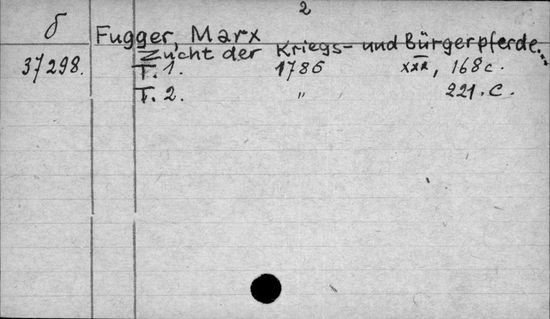 2
б
Fugger, Marx
Zucht der Kriegs- und Bürgerpferde...
37298. T. 1. 1786 XXX, 168 c.
T. 2. " 221. c.